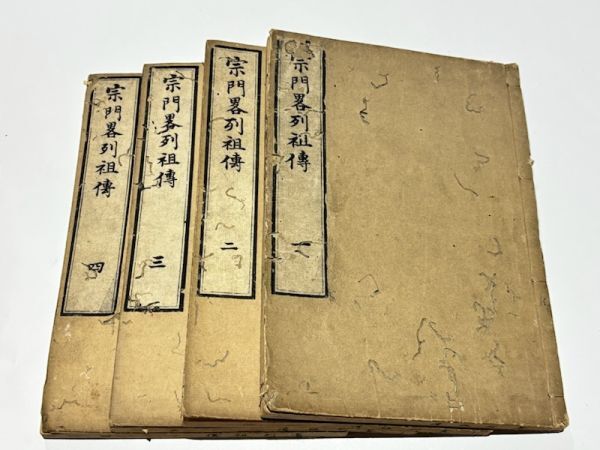 宗門畧列祖傳
一
宗門畧列祖傳
二
宗門畧列祖傳
三
宗門畧列祖傳
四